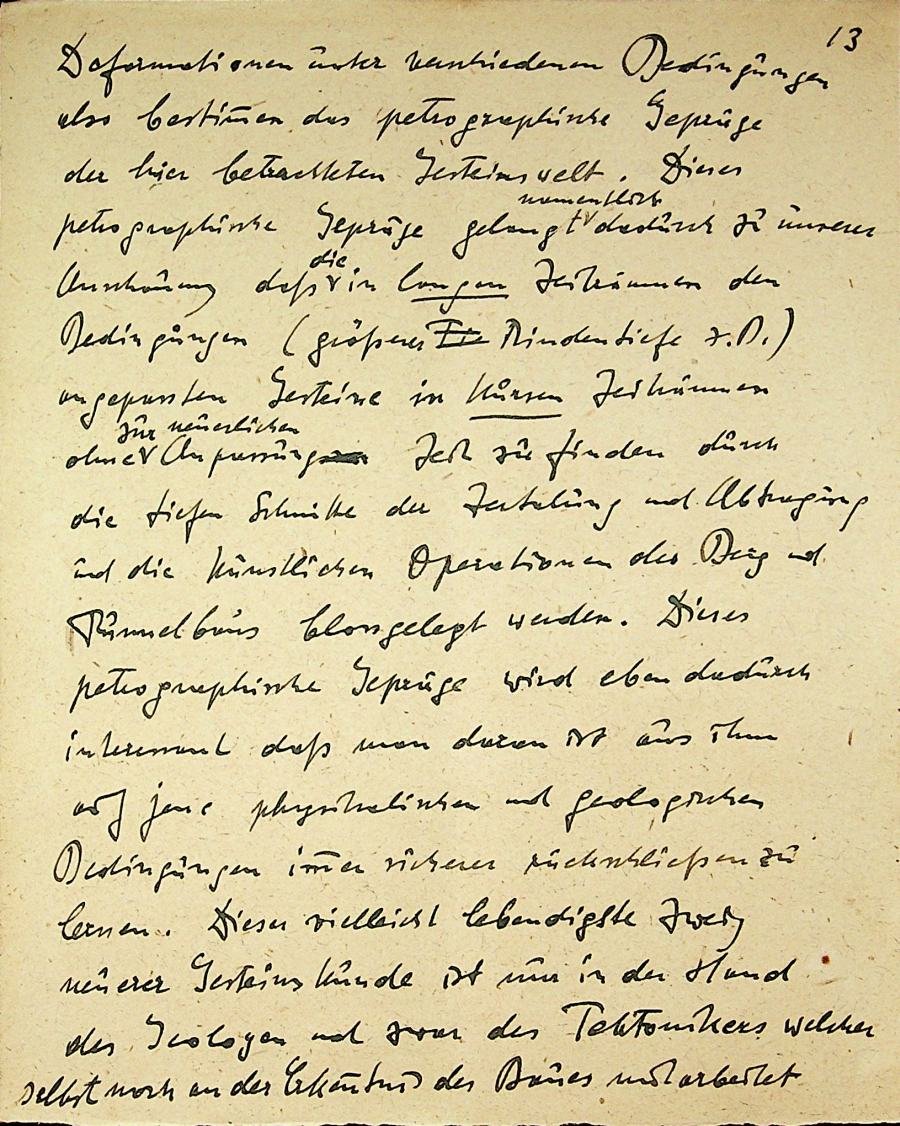 13
Deformationen unter verschiedenen Bedingungen
also bestim̅en das petrographische Gepräge
der hier betrachteten Gesteinswelt. Dieses
namentlich
petrographische Gepräge gelangt dadurch zu unserer
die
Anschauung daß in langen Zeiträumen den
Bedingungen (größerer Rindentiefe z.B.)
angepassten Gesteine in kurzen Zeiträumen
zur neuerlichen
ohne Anpassung Zeit zu finden durch
die tiefen Schnitte der Zertalung und Abtragung
und die künstlichen Operationen des Berg und
Tunnelbaus blossgelegt werden. Dieses
petrographische Gepräge wird eben dadurch
interessant daß man daran ist aus ihm
auf jene physikalischen und geologischen
Bedingungen im̅er sicherer rückschließen zu
lernen. Dieser vielleicht lebendigste Zweig
neuerer Gesteinskunde ist nur in der Hand
des Geologen und zwar des Tektonikers welcher
selbst noch an der Erkenntnis des Baues mitarbeitet